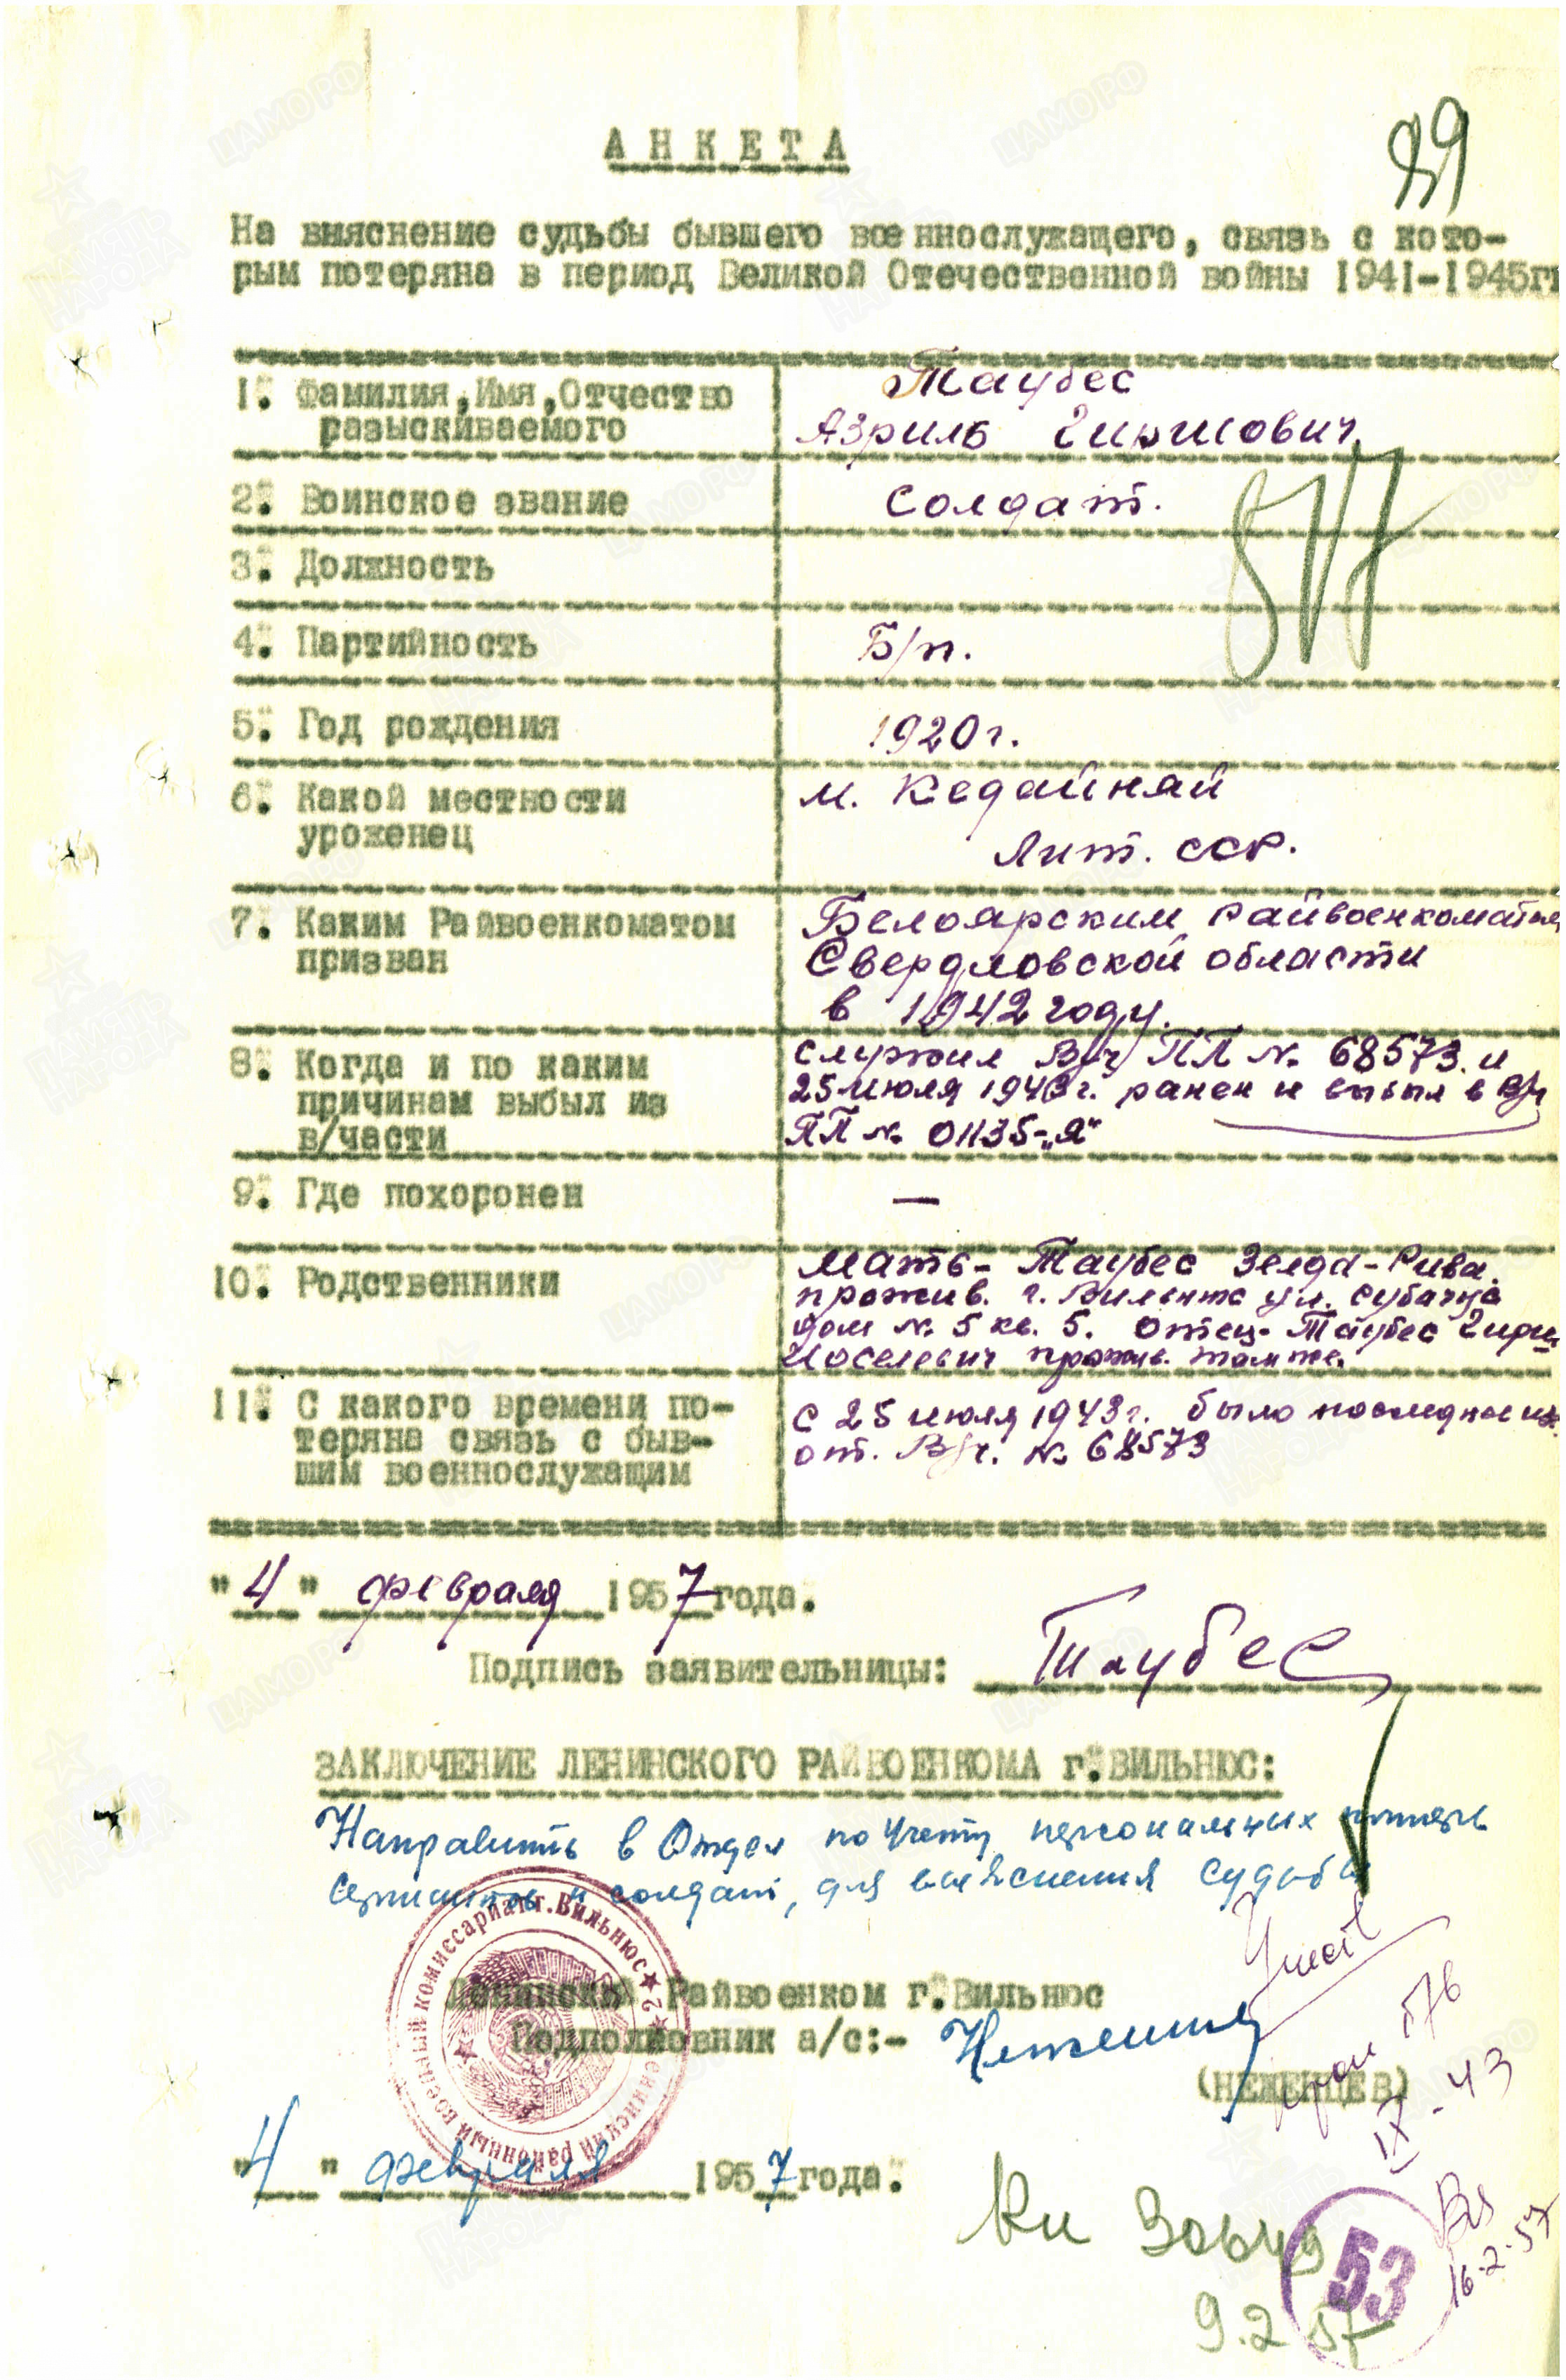 89
АНКЕТА
На выяснение судьбы бывшего военнослужащего, связь с кото-
рым потеряна в период Великой Отечественной войны 1941-1945гг
1. Фамилия, Имя, Отчество
разыскиваемого
Таубес
Азриль Гиршович
2. Воинское звание
Солдат.
3. Должность
4. Партийность
Б/п.
5. Год рождения
1920 г.
6. Какой местности
уроженец
м. Кедайняй
Лит. ССР.
7. Каким Райвоенкоматом
призван
Белоярским Райвоенкоматом
Свердловской области
в 1942 году.
8. Когда и по каким
причинам выбыл из
в/части
служил В/ч ПП № 68573. и
25 июля 1943 г. ранен и выбыл в В/ч
ПП № 01135-"Я"
9. Где похоронен
—
10. Родственники
Мать - Таубес Зелда-Рива.
прожив. г. Вильнюс ул. Субачяус
дом № 5 кв. 5. Отец - Таубес Гирш
Иоселевич прожив. там же.
11. С какого времени по-
теряна связь с быв-
шим военнослужащим
С 25 июля 1943 г. было последнее
от. В/ч. № 68573
"4" февраля 1957 года.
Подпись заявительницы: Таубес
ЗАКЛЮЧЕНИЕ ЛЕНИНСКОГО РАЙВОЕНКОМА г. ВИЛЬНЮС:
Направить в Отдел по учету персональных потерь
сержантов и солдат, для выяснения судьбы
Ленинский Райвоенком г. Вильнюс
Подполковник а/с:-
(НЕЖЕНЦЕВ)
Ленинский районный военный комиссариат г. Вильнюс ★ 2 ★
"4" февраля 1957 года.
IX-43
16-2-57
53
9.2.57
ЦАМО РФ
ПАМЯТЬ НАРОДА